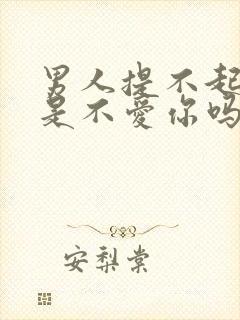 男人提不起
是不爱你吗
安梨棠